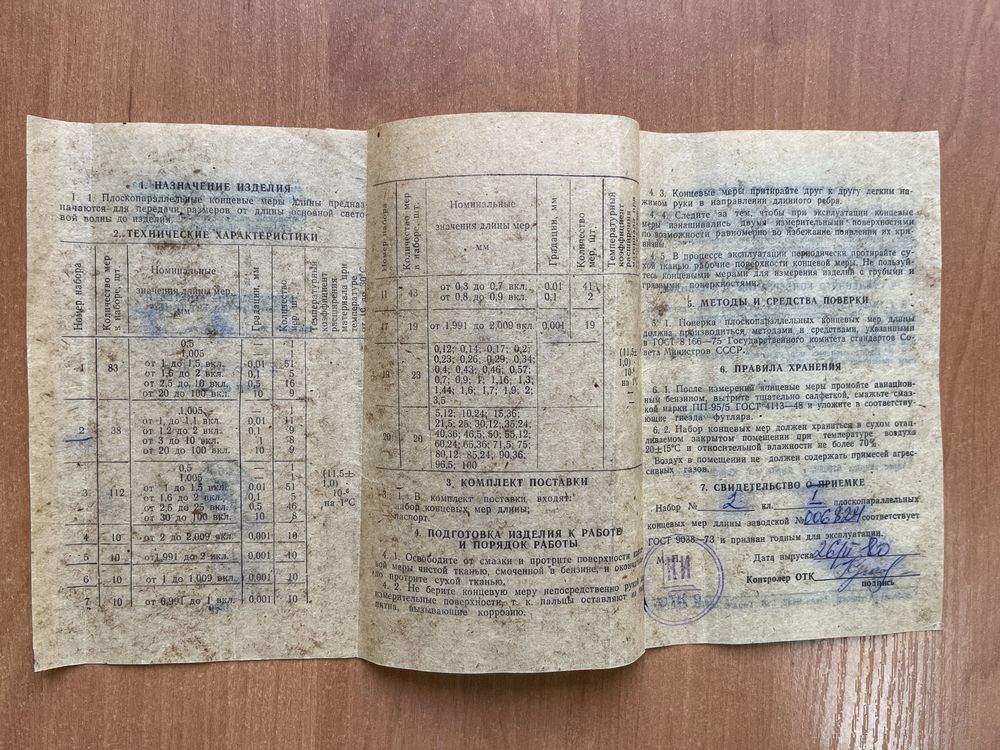 1. НАЗНАЧЕНИЕ ИЗДЕЛИЯ
1. 1. Плоскопараллельные концевые меры длины предназ-
начаются для передачи размеров от длины основной свето-
вой волны до изделия.
2. ТЕХНИЧЕСКИЕ ХАРАКТЕРИСТИКИ
Номер набора
Количество мер в наборе, шт.
Номинальные
значения длины мер,
мм
Градации, мм
Количество мер, шт.
Температурный коэффициент расширения материала при температуре
0,5 — 1
1,005 — 1
1 83 от 1 до 1,5 вкл. 0,01 51
от 1,6 до 2 вкл. 0,1 5
от 2,5 до 10 вкл. 0,5 16
от 20 до 100 вкл. 10 9
1,005 — 1
от 1 до 1,1 вкл. 0,01 11
2 38 от 1,2 до 2 вкл. 0,1 9
от 3 до 10 вкл. 1 8
от 20 до 100 вкл. 10 9
0,5 — 1
1,005 — 1
3 112 от 1 до 1,5 вкл. 0,01 51
от 1,6 до 2 вкл. 0,1 5
от 2,5 до 25 вкл. 0,5 46
от 30 до 100 вкл. 10 8
(11,5±
1,0)
10⁻⁶
на 1°С
4 10 от 2 до 2,009 вкл. 0,001 10
5 10 от 1,991 до 2 вкл. 0,001 10
6 10 от 1 до 1,009 вкл. 0,001 10
7 10 от 0,991 до 1 вкл. 0,001 10
Номер набора
Количество мер в наборе, шт.
Номинальные
значения длины мер,
мм
Градации, мм
Количество мер, шт.
Температурный коэффициент расширения
11 43 от 0,3 до 0,7 вкл. 0,01 41
от 0,8 до 0,9 вкл. 0,1 2
17 19 от 1,991 до 2,009 вкл. 0,001 19
0,12; 0,14; 0,17; 0,2;
0,23; 0,26; 0,29; 0,34;
19 23 0,4; 0,43; 0,46; 0,57;
0,7; 0,9; 1; 1,16; 1,3;
1,44; 1,6; 1,7; 1,9; 2;
3,5
(11,5±
1,0)
10⁻⁶
на 1°
5,12; 10,24; 15,36;
21,5; 25; 30,12; 35,24;
20 20 40,36; 46,5; 50; 55,12;
60,24; 65,36; 71,5; 75;
80,12; 85,24; 90,36;
96,5; 100
3. КОМПЛЕКТ ПОСТАВКИ
В комплект поставки входят:
набор концевых мер длины;
паспорт.
4. ПОДГОТОВКА ИЗДЕЛИЯ К РАБОТЕ
И ПОРЯДОК РАБОТЫ
4. 1. Освободите от смазки и протрите поверхности
вой меры чистой тканью, смоченной в бензине, и
но протрите сухой тканью.
2. Не берите концевую меру непосредственно рукой
измерительные поверхности, т. к. пальцы оставляют на
пятна, вызывающие коррозию.
4. 3. Концевые меры притирайте друг к другу легким на-
жимом руки в направлении длинного ребра.
4. 4. Следите за тем, чтобы при эксплуатации концевые
меры изнашивались двумя измерительными поверхностями
по возможности равномерно во избежание появления их кри-
визны.
4. 5. В процессе эксплуатации периодически протирайте су-
хой тканью рабочие поверхности концевой меры. Не пользуй-
тесь концевыми мерами для измерения изделий с грубыми и
грязными поверхностями.
5. МЕТОДЫ И СРЕДСТВА ПОВЕРКИ
5. 1. Поверка плоскопараллельных концевых мер длины
должна производиться методами и средствами, указанными
в ГОСТ 8.166—75 Государственного комитета стандартов Со-
вета Министров СССР.
6. ПРАВИЛА ХРАНЕНИЯ
6. 1. После измерений концевые меры промойте авиацион-
ным бензином, вытрите тщательно салфеткой, смажьте смаз-
кой марки ПП-95/5 ГОСТ 4113—48 и уложите в соответству-
ющие гнезда футляра.
6. 2. Набор концевых мер должен храниться в сухом отап-
ливаемом закрытом помещении при температуре воздуха
20±15°С и относительной влажности не более 70%.
Воздух в помещении не должен содержать примесей агрес-
сивных газов.
7. СВИДЕТЕЛЬСТВО О ПРИЕМКЕ
Набор № 2 кл. 1 плоскопараллельных
концевых мер длины заводской № 006824 соответствует
ГОСТ 9038—73 и признан годным для эксплуатации.
Дата выпуска 26/II 80
Контролер ОТК
подпись